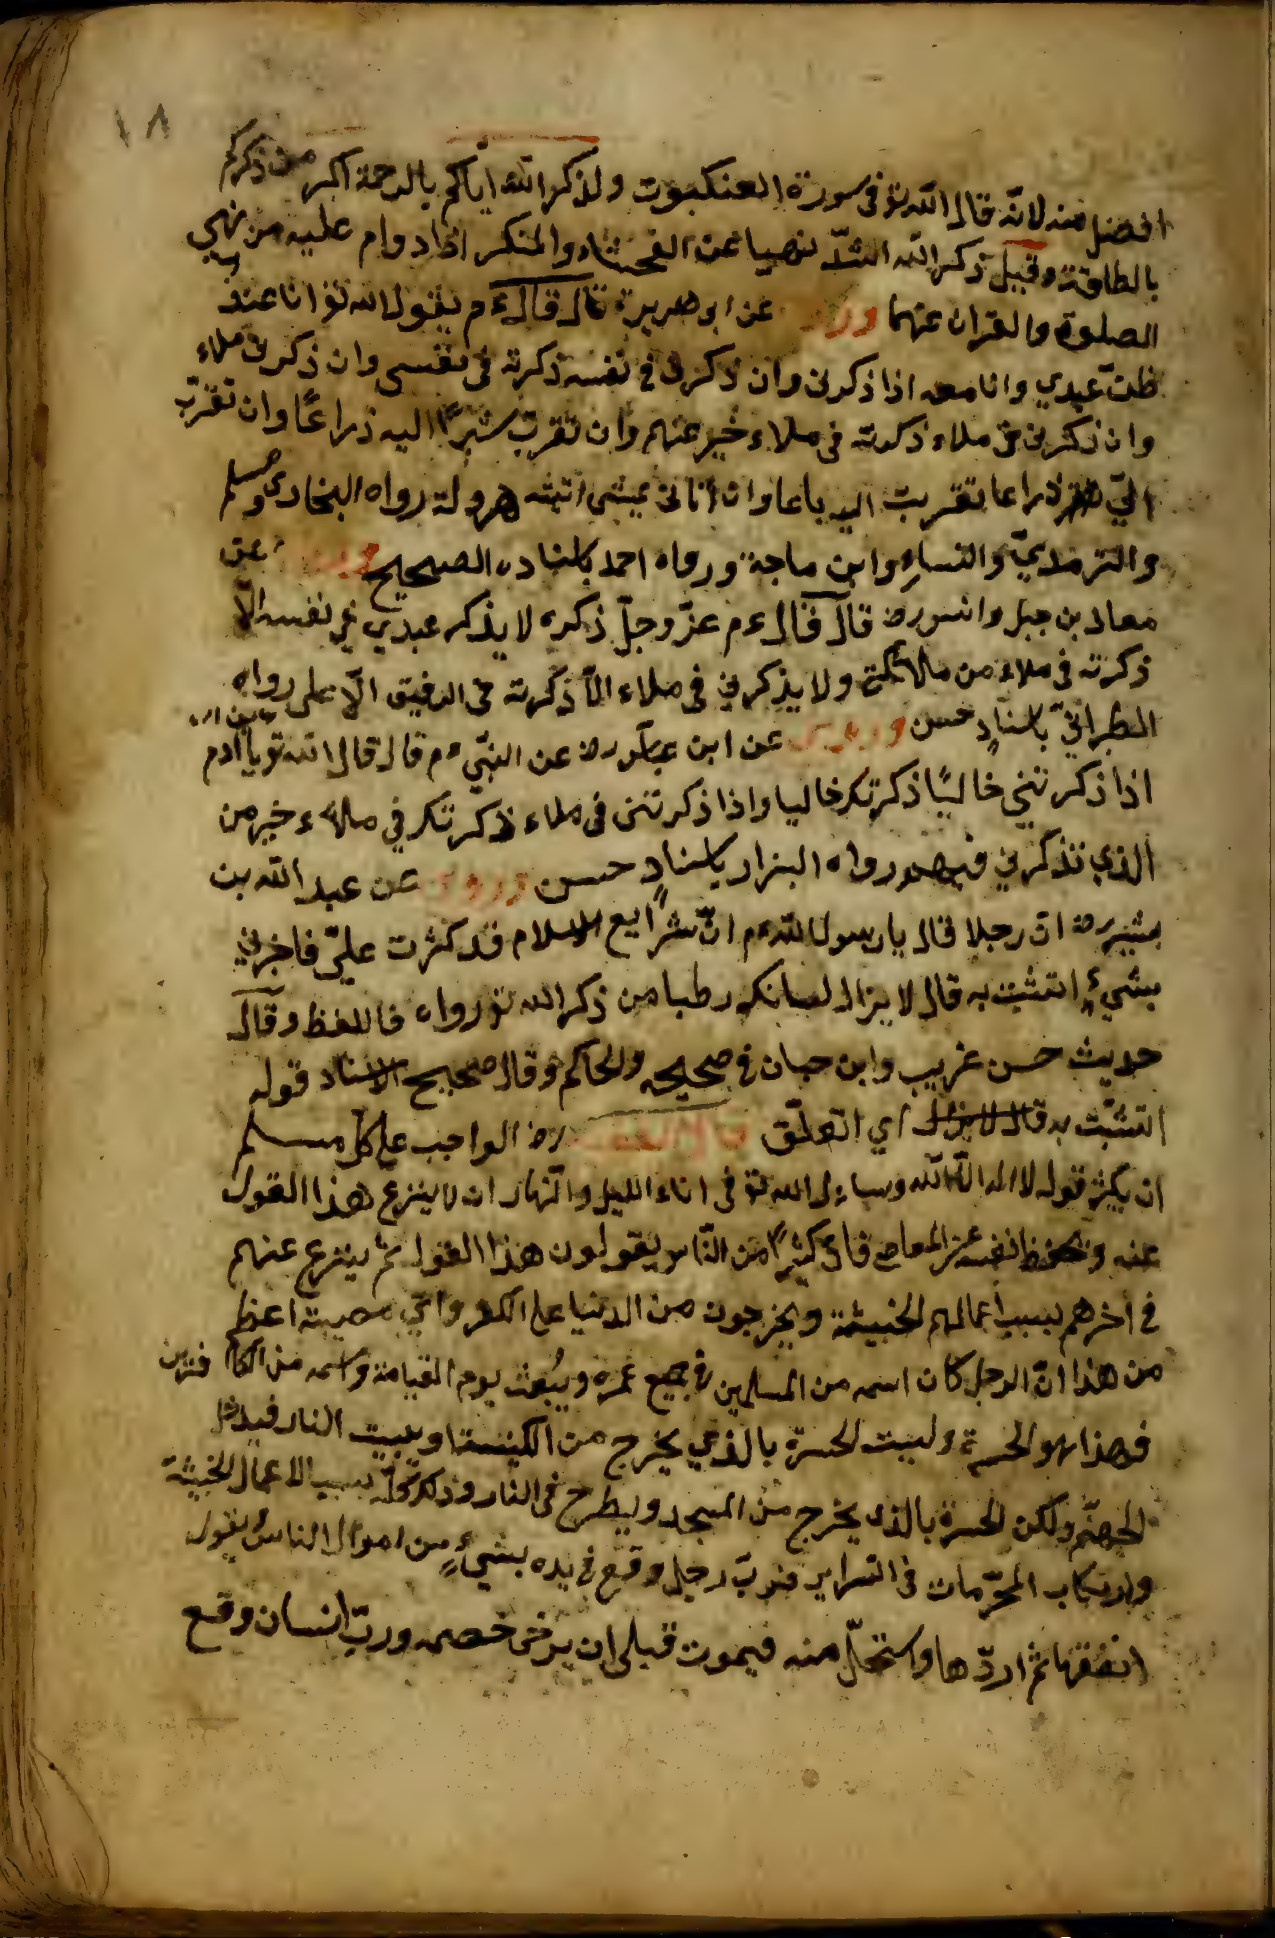 ١٨
افضل منه لانّه قال اللّه تو فى سورة العنكبوت ولذكر اللّه ايّاكم بالرحمة اكبر من ذكركم
بالطاقة وقيل ذكر اللّه اشدّ نهيا عن الفحشاء والمنكر اذا دوام عليه من نهي
الصلوة والقران عنهما وروى عن ابى هريرة قال قال ءم يقول الله تو انا عند
ظنّ عبدي وانا معه اذا ذكرنى وان ذكرنى فى نفسه ذكرته فى نفسى وان ذكرنى ملاء
وان ذكرنى فى ملاء ذكرته فى ملاء خير عنهم وان تقربّ شبرًا اليه ذراعًا وان تقرّب
اليّ ذراعا تقربت اليه باعا وان اتانى يمشى اتيته هرولة رواه البخارى ومسلم
والترمذيّ والنساء وابن ماجة ورواه احمد باسناده الصحيح عن
معاد بن جبل وانس رض قال قال ءم عزّ وجلّ ذكره لا يذكر عبدي فى نفسه الّا
ذكرته فى ملاء من ملائكتى ولا يذكرني فى ملاء الّا ذكرته فى الرفيق الّا على رواه
الطبرانيّ باسنادٍ حسن وروى عن ابن عبّاس رض عن النبّي ءم قال قال الله تو يا ادم
اذا ذكرتنى خاليًا ذكرتك خاليا واذا ذكرتنى فى ملاء ذكرتك في ملاء خير من
الذي تذكرني فيهم رواه البزار باسنادٍ حسن وروى عن عبد الله بن
بشير رض انّ رجلا قال يا رسول اللّه ءم انّ شرايع الاسلام قد كثرت عليّ فاخبرني
بشيءٍ اتشبّت به قال لا يزال لسانك رطبا من ذكر الله تو رواه فاللفظ وقال
حديث حسن غريب وابن حبان فى صحيحه والحاكم وقال صحيح الاسناد قوله
اتشبّت به قال لا يزال اي اتعلّق رض الواجب على كلّ مسلم
ان يكثر قوله لا اله الّا اللّه وساءل الله تو فى اناء الليل والنّهار ان لا ينزع هذا القول
عنه ويحفظ نفسه عن المعاصى فانّ كثيرًا من النّاس يقولون هذا القول ثمّ ينزع عنهم
فى اخرهم بسبب اعمالهم الخبيثة ويخرجون من الدنيا على الكفر وايّ مصيبة اعظم
من هذا انّ الرجل كان اسمه من المسلمين فى جميع عمره ويُبعث يوم القيامة واسمه من الكافرين
فهذا هو الحسرة وليست الحسرة بالذي يخرج من الكنيسة او بيت النار فيدخل
الجهنّم ولكن الحسرة بالذى يخرج من المسجد ويطرح فى النار وذلك كلّه بسبب الاعمال الخبيثة
وارتكاب المحرّمات فى السراير فربّ رجل وقع فى يده بشيءٍ من اموال الناس يقول
انفقها ثمّ اردّها واستحلّ منه فيموت قبل ان يرضى خصمه وربّ انسان وقع